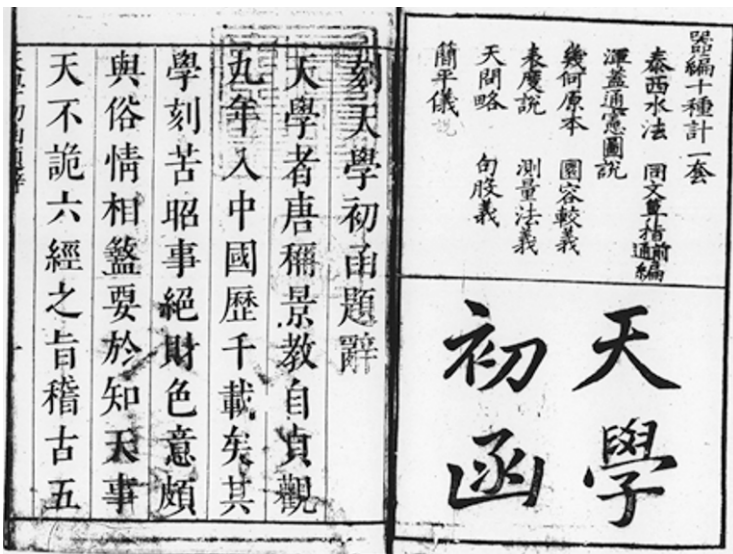 器編十種計一套
泰西水法 同文算指前編通編
渾蓋通憲圖說
幾何原本 圜容較義
表度說 測量法義
天問略 句股義
簡平儀說
天學
初函
刻天學初函題辭
天學者唐稱景教自貞觀
九年入中國歷千載矣其
學刻苦昭事絕財色意頗
與俗情相盭要於知天事
天不詭六經之旨稽古五